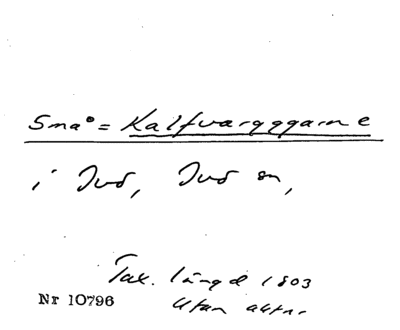 Små = Kalfvarggarne
i Jud, Jud sn,
Tax. längd 1803
Nr 10796
utan aktnr